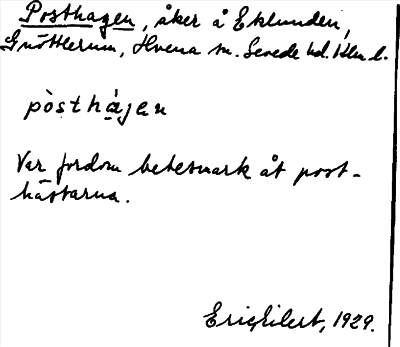 Posthagen, åker å Eklunden,
Gnöttlerum, Hvena sn. Sevede hd. Klm l.
pòsthá̤jen
Var fordom betesmark åt post-
hästarna.
Eric Eilert, 1929.